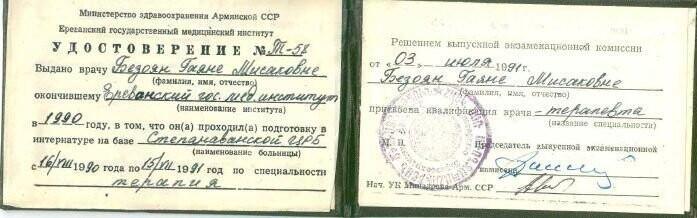 Министерство здравоохранения Армянской ССР
Ереванский государственный медицинский институт
УДОСТОВЕРЕНИЕ № Т-58
Выдано врачу Бездян Гаяне Мисаковне
(фамилия, имя, отчество)
окончившему Ереванский гос. мед. институт
(наименование института)
в 1990 году, в том, что он(а) проходил(а) подготовку в
интернатуре на базе Степанаванской ЦРБ
(наименование больницы)
с 16/VIII 1990 года по 15/VII 1991 года по специальности
терапия
Решением выпускной экзаменационной комиссии
от „03„ июля 1991г.
Бездян Гаяне Мисаковне
(фамилия, имя, отчество)
присвоена квалификация врача-терапевта
(название специальности)
М. П.
Председатель выпускной экзаменационной
комиссии
Нач. УК Минздрава Арм. ССР